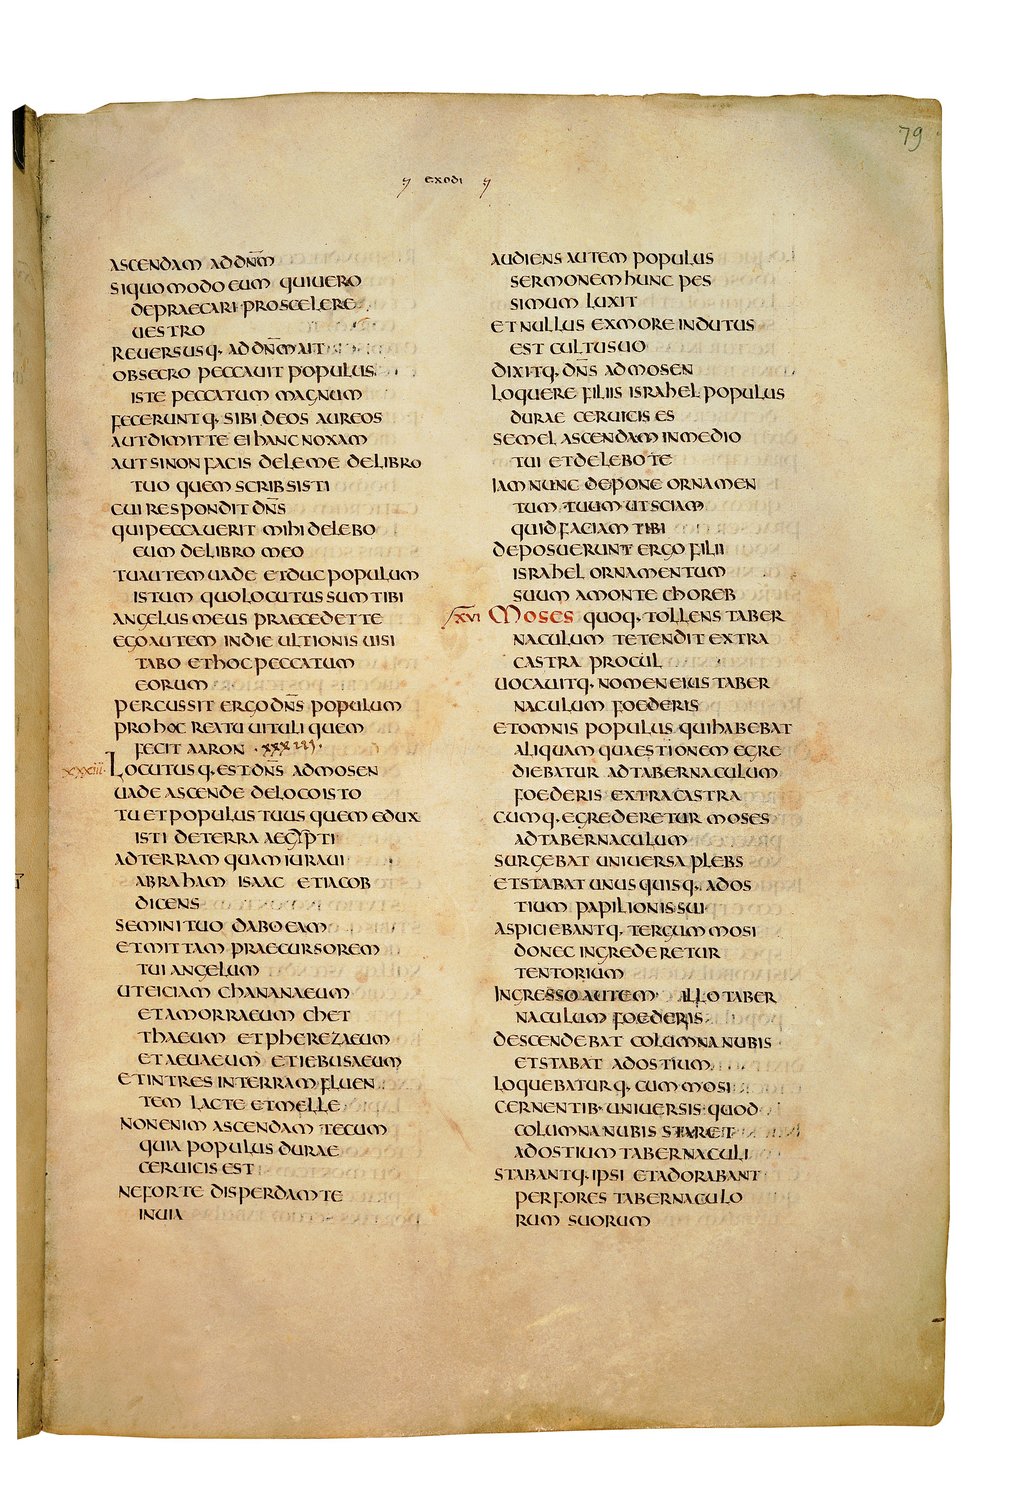 79
exodi
ascendam ad dn̄m
si quo modo eum quiuero
depraecari pro scelere
uestro
reuersusq· ad dn̄m ait
obsecro peccauit populus
iste peccatum magnum
feceruntq· sibi deos aureos
aut dimitte ei hanc noxam
aut si non facis dele me de libro
tuo quem scribsisti
cui respondit dn̄s
qui peccauerit mihi delebo
eum de libro meo
tu autem uade et duc populum
istum quo locutus sum tibi
angelus meus praecedet te
ego autem in die ultionis uisi
tabo et hoc peccatum
eorum
percussit ergo dn̄s populum
pro hoc reatu uituli quem
fecit aaron · xxxiii ·
xxxiii · Locutusq· est dn̄s ad mosen
uade ascende de loco isto
tu et populus tuus quem edux
isti de terra aegypti
ad terram quam iuraui
abraham isaac et iacob
dicens
semini tuo dabo eam
et mittam praecursorem
tui angelum
ut eiciam chananaeum
et amorraeum et chet
thaeum et pherezaeum
et aeuaeum et iebusaeum
et intres in terram fluen
tem lacte et melle
non enim ascendam tecum
quia populus durae
ceruicis est
ne forte disperdam te
in uia
audiens autem populus
sermonem hunc pes
simum luxit
et nullus ex more indutus
est cultu suo
dixitq· dn̄s ad mosen
loquere filiis israhel populus
durae ceruicis es
semel ascendam in medio
tui et delebo te
iam nunc depone ornamen
tum tuum ut sciam
quid faciam tibi
deposuerunt ergo filii
israhel ornamentum
suum a monte choreb
Moses quoq· tollens taber
naculum tetendit extra
castra procul
uocauitq· nomen eius taber
naculum foederis
et omnis populus qui habebat
aliquam quaestionem egre
diebatur ad tabernaculum
foederis extra castra
cumq· egrederetur moses
ad tabernaculum
surgebat uniuersa plebs
et stabat unus quisq· ad os
tium papilionis sui
aspiciebantq· tergum mosi
donec ingrederetur
tentorium
ingresso autem illo taber
naculum foederis
descendebat columna nubis
et stabat ad ostium
loquebaturq· cum mosi
cernentib· uniuersis quod
columna nubis staret
ad ostium tabernaculi
stabantq· ipsi et adorabant
per fores tabernaculo
rum suorum